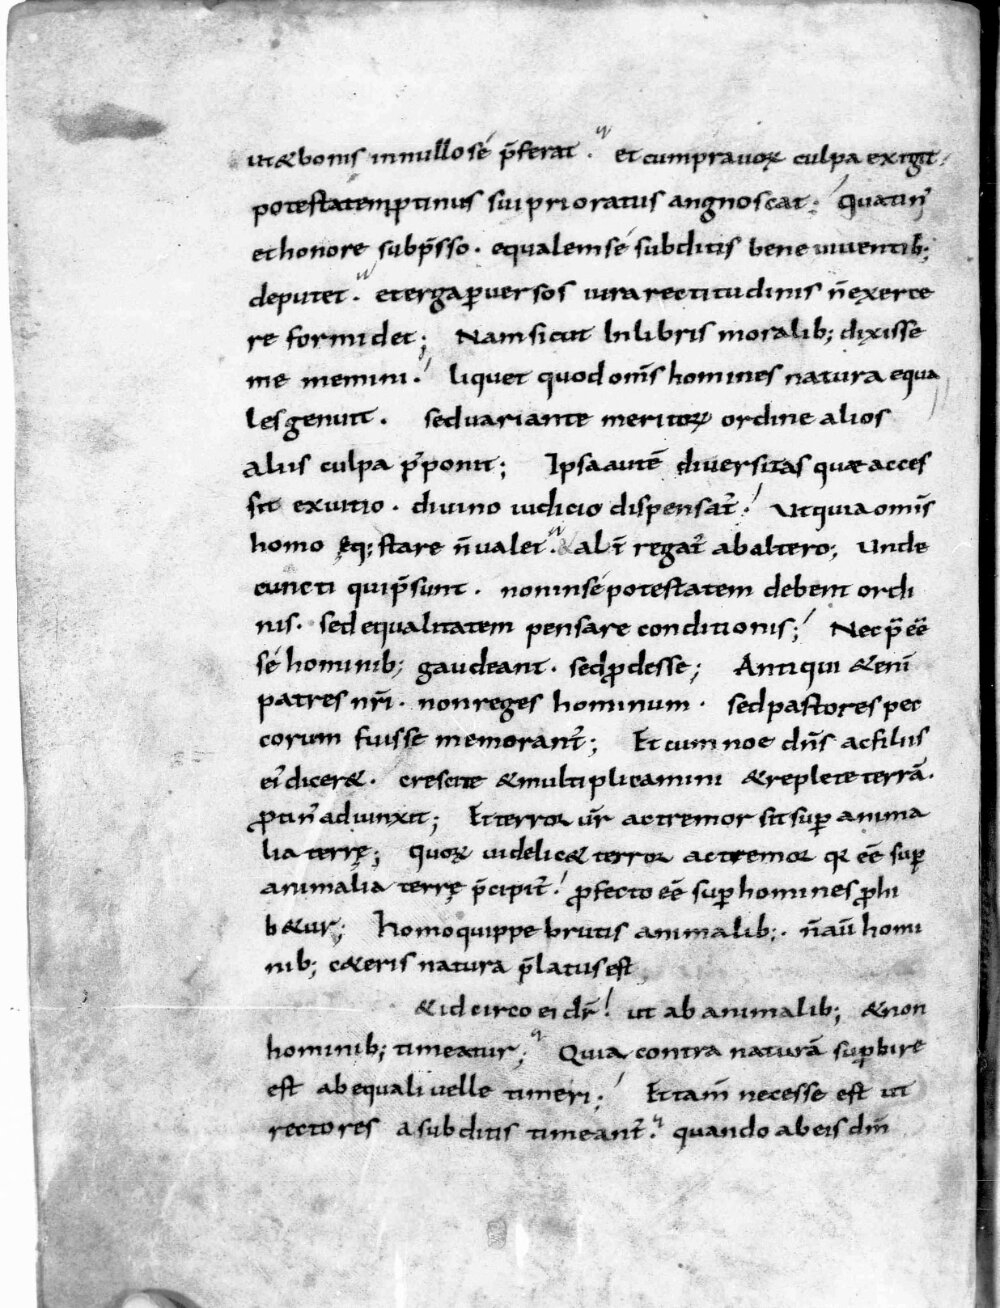 ut&bonis innullosé p̄ferat. et cumprauoꝝ culpa exigit
potestatemptinus sui prioratus angnoscat; Quatin᾽
ethonore subp̄sso. equalemsé subditis bene uiuentib;
deputet. etergaꝑuersos iura rectitudinis n̄exerce
re formidet; Namsicut Inlibris moralib; dixisse
me memini. liquet quod om̄s homines natura equa
lesgenuit. seduariante meritoꝝ ordine alios
aliis culpa p᾽ponit; Ipsa autē diuersitas quæ acces
sit exuitio. diuino iudicio dispensat᾽. Utquia omīs
homo ęq; stare n̄ualet. & alt̄ regat᾽ abaltero; Unde
cuncti quip̄sunt. noninsépotestatem debent ordi
nis. sed equalitatem pensare conditionis; Nec p̄eē
sé hominib; gaudeant. sedꝓdesse; Antiqui &enī
patres nr̄i. nonreges hominum. sedpastores pec
corum fuisse memorant᾽; Et cum noe dn̄s acfiliis
ei᾽ dicer&. crescite &multiplicamini &replete terrā.
ꝓtin᾽ adiunxit; Etterror ur̄ ac tremor sit suꝑ anima
lia terrę; Quoꝝ uidelic& terror actremor qꝛ eē suꝑ
animalia terrę p̄cipit᾽! ꝓfecto eē suꝑ homines ꝓhi
b&ur; Homoquippe brutis animalib;. n̄aū homi
nib; c&eris natura p̄latusest
&idcirco ei dr̄! ut ab animalib; &non
hominib; timeatur; Quia contra naturā suꝑbire
est abequali uelle timeri; Ettam̄ necesse est ut
rectores asubditis timeant᾽. quando abeis dm̄